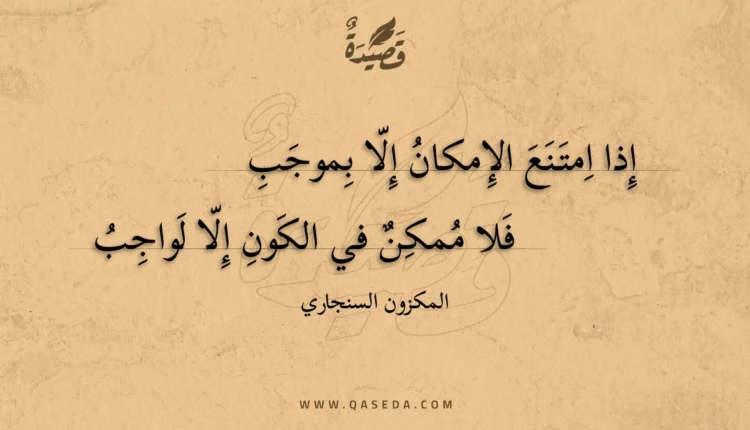 قَصِيْدَةٌ
إِذا اِمتَنَعَ الإِمكانُ إِلّا بِموجَبِ
فَلا مُمكِنٌ في الكَونِ إِلّا لَواجِبُ
المكزون السنجاري
WWW.QASEDA.COM